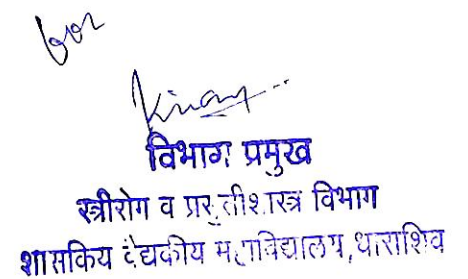 for
विभाग प्रमुख
स्त्रीरोग व प्रसुतीशास्त्र विभाग
शासकिय वैद्यकीय महाविद्यालय, धाराशिव